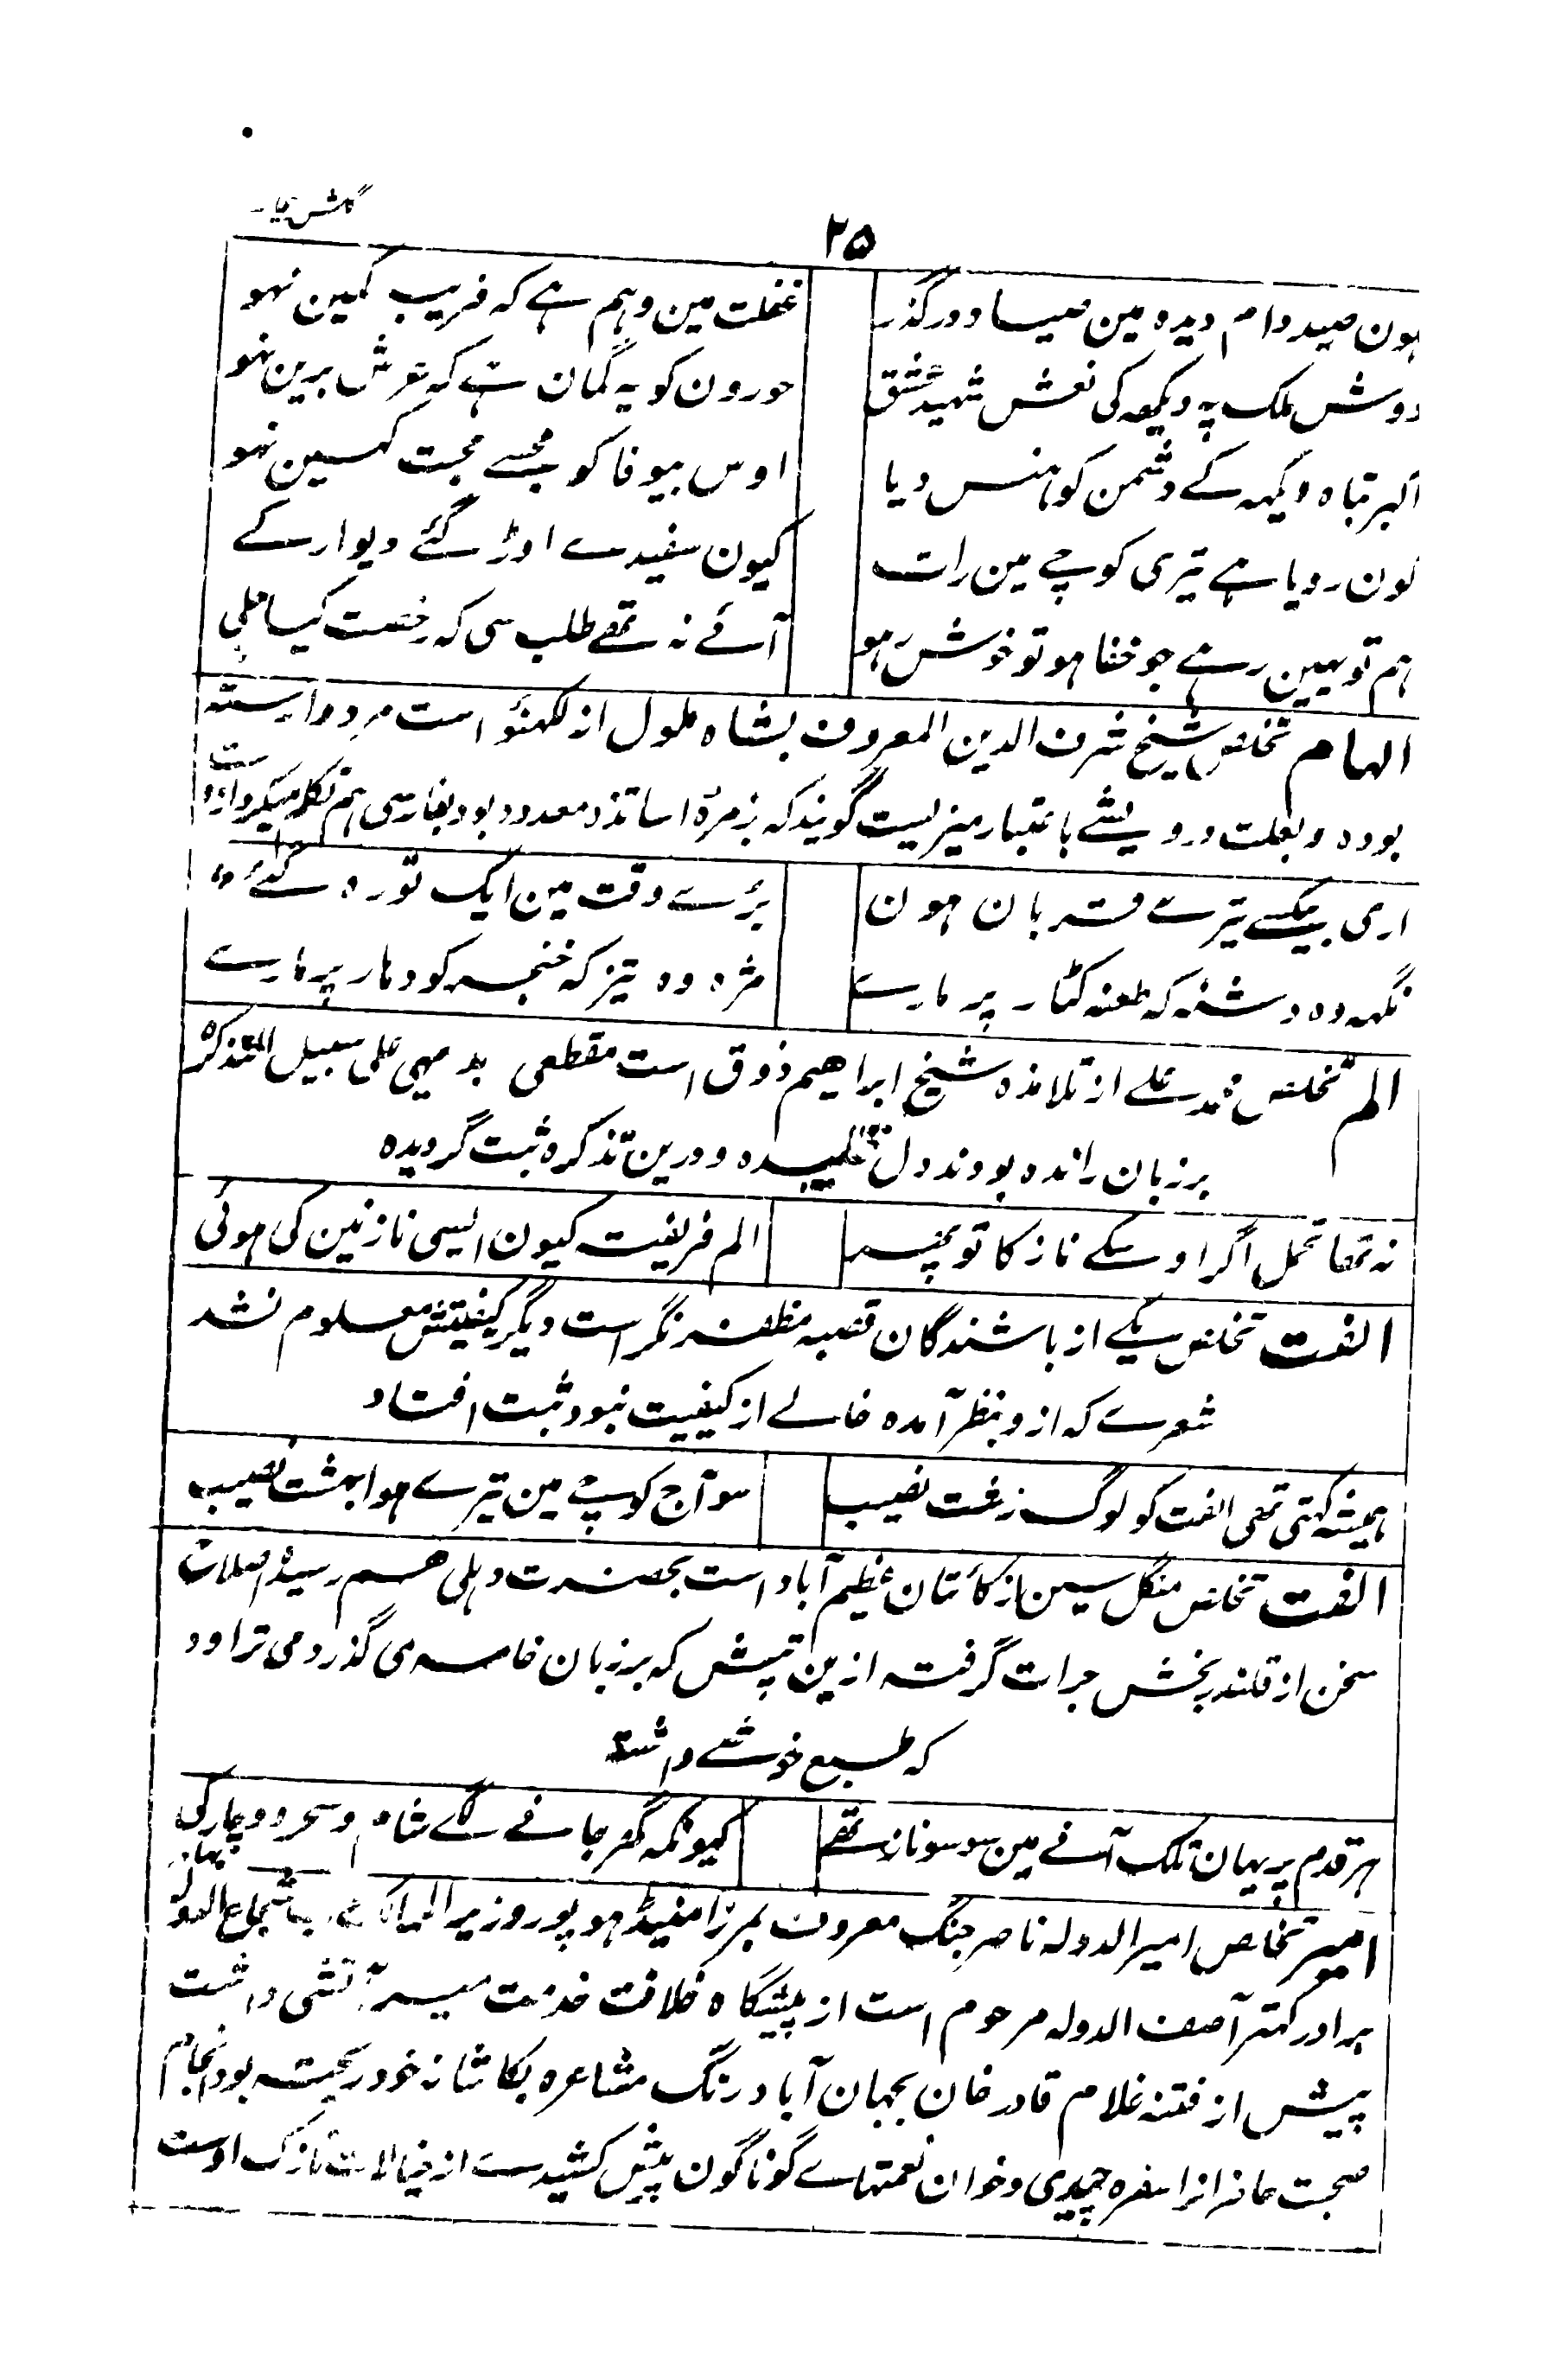 گلشن بیخار
۲۵
ہون صید دام دیدہ مین صیاد درگذر
غفلت مین وہم ہے کہ فریب کمین نہو
دوش ملک پہ دیکھہ کی نعش شہید عشق
حورون کو یہ گمان ہے کہ عرش برین نہو
اکبر تباہ دیکہہ کے دشمن کو ہنس دیا
اوس بیوفا کو مجسے محبت کہین نہو
کون رویا ہے تیری کوچے مین رات
کیون سفیدے اوڑ گئے دیوار کے
ہم تو یہین رہے جو خفا ہو تو خوش رہو
آئے نہ تھے طلب سی کہ رخصت کیا چلے
الہام تخلص شیخ شرف الدین المعروف بشاہ ملول از لکہنؤ است مرد وارستہ
بودہ و بعلت درویشے باعتبار میزیست گویند کہ بزمرۂ اساتذہ معدود بود بفارسی ہم تکلم میکرد ازوست
اری بیکسے تیرے قربان ہون
برے وقت مین ایک تو رہ گئے
نگہہ وہ دشنہ کہ طعنہ کٹار پر مارے
مژہ وہ تیز کہ خنجر کو دہار پر مارے
الم تخلص محمد علے از تلامذہ شیخ ابراہیم ذوق است مقطعی بدیہی علی سبیل التذکرہ
برزبان راندہ بودند دل طلبیدہ و درین تذکرہ ثبت گردیدہ
نہ تھا تحمل اگر اوسکے ناز کا تو پھر
الم فریفتہ کیون ایسی نازنین کی ہوئی
الفت تخلص یکے از باشندگان قصبہ مظفرنگر است دیگر کیفیتش معلوم نشد
شعرے کہ ازو بنظر آمدہ خالے از کیفیت نبود ثبت افتاد
ہمیشہ کہتی تھی الفت کو لوگ زشت نصیب
سو آج کوچے مین تیرے ہوا بہشت نصیب
الفت تخلص منگل سین از کائتان عظیم آباد است بحضرت دہلی ہم رسیدہ اصلاح
سخن از قلندر بخش جرات گرفتہ ازین تپش کہ برزبان خامہ می گذرد می تراود
کہ طبع خوشے داشتہ
ہر قدم پر یہان تلک آنے مین سو سو ناز تھے
کیونکہ گھر جانے لگے شام و سحر دو چار کی
امیر تخلص امیرالدولہ ناصر جنگ معروف بمرزا مینڈہو پور وزیر الممالک شجاع الدولہ بہادر
برادر کہتر آصف الدولہ مرحوم است از پیشگاہ خلافت خدمت میر آتشی داشت
پیش از فتنہ غلام قادر خان بجہان آباد رنگ مشاعرہ بکاشانہ خود ریختہ بود انجام
صحبت حاضرانرا سفرہ چیدی و خوان نعمتہاے گوناگون پیش کشیدے از خیالات نازک اوست